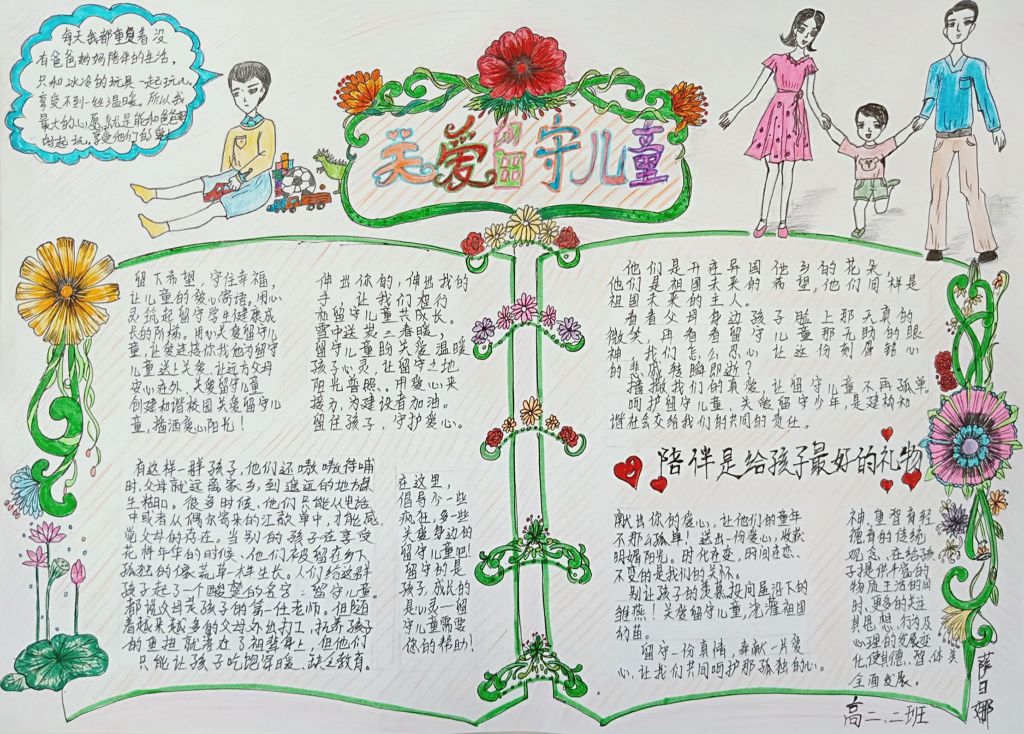 每天我都重复着没
有爸爸妈妈陪伴的生活，
只和冰冷的玩具一起玩儿，
享受不到一丝温暖。所以我
最大的心愿就是能和爸爸妈
妈一起玩，享受他们的爱！
关爱的留守儿童
留下希望，守住幸福，
让儿童的爱心简语，用心
灵筑起留守学生健康成
长的阶梯。用心关爱留守儿
童，让爱连接你我他为留守
儿童送上关爱，让远方父母
安心在外。关爱留守儿童
创建和谐校园关爱留守儿
童，播洒爱心阳光！
伸出你的，伸出我的
手，让我们想行
和留守儿童共成长。
雪中送炭三春暖，
留守儿童盼关爱温暖
孩子心灵，让留守之地
阳光普照。用爱心来
接力，为建设者加油。
留住孩子，守护爱心。
有这样一群孩子，他们还嗷嗷待哺
时，父母就远离家乡，到遥远的地方谋
生糊口。很多时候，他们只能从电话
中或者从偶尔寄来的汇款单中，才能感
觉父母的存在。当别的孩子在享受
花样年华的时候，他们被留在乡下，
孤独的像荒草一样生长。人们给这群
孩子起了一个酸楚的名字：留守儿童。
都说父母是孩子的第一任老师。但随
着越来越多的父母外出打工，抚养孩子
的重担就落在了祖辈身上，但他们
只能让孩子吃饱穿暖，缺乏教育。
在这里，
倡导少一些
疯狂，多一些
关爱身边的
留守儿童吧！
留守的是
孩子，成长的
是心灵一留
守儿童需要
你的帮助！
他们是开在异国他乡的花朵，
他们是祖国未来的希望，他们同样是
祖国未来的主人。
看看父母身边孩子脸上那天真的
微笑，再看看留守儿童那无助的眼
神，我们怎么忍心让这份刻骨铭心
的悲戚转瞬即逝？
播撒我们的真爱，让留守儿童不再孤单。
呵护留守儿童，关爱留守少年，是建构和
谐社会交给我们的共同的责任。
陪伴是给孩子最好的礼物
献出你的爱心，让他们的童年
不那么孤单！送出一份爱心，收获
明媚阳光。时代在变，时间在恋、
不变的是我们的关怀。
别让孩子的羡慕按间屋沿下的
雏燕！关爱留守儿童，浇灌祖国
幼苗。
留守一份真情，奉献一片爱
心，让我们共同呵护那孤独的心。
神，重智育轻
德育的传统
观念，在给孩
子提供丰富的
物质生活的同
时，更多的关注
其思想、行为及
心理的发展变
化，使其德、智、体、美
全面发展。
高二、二班
萨日娜